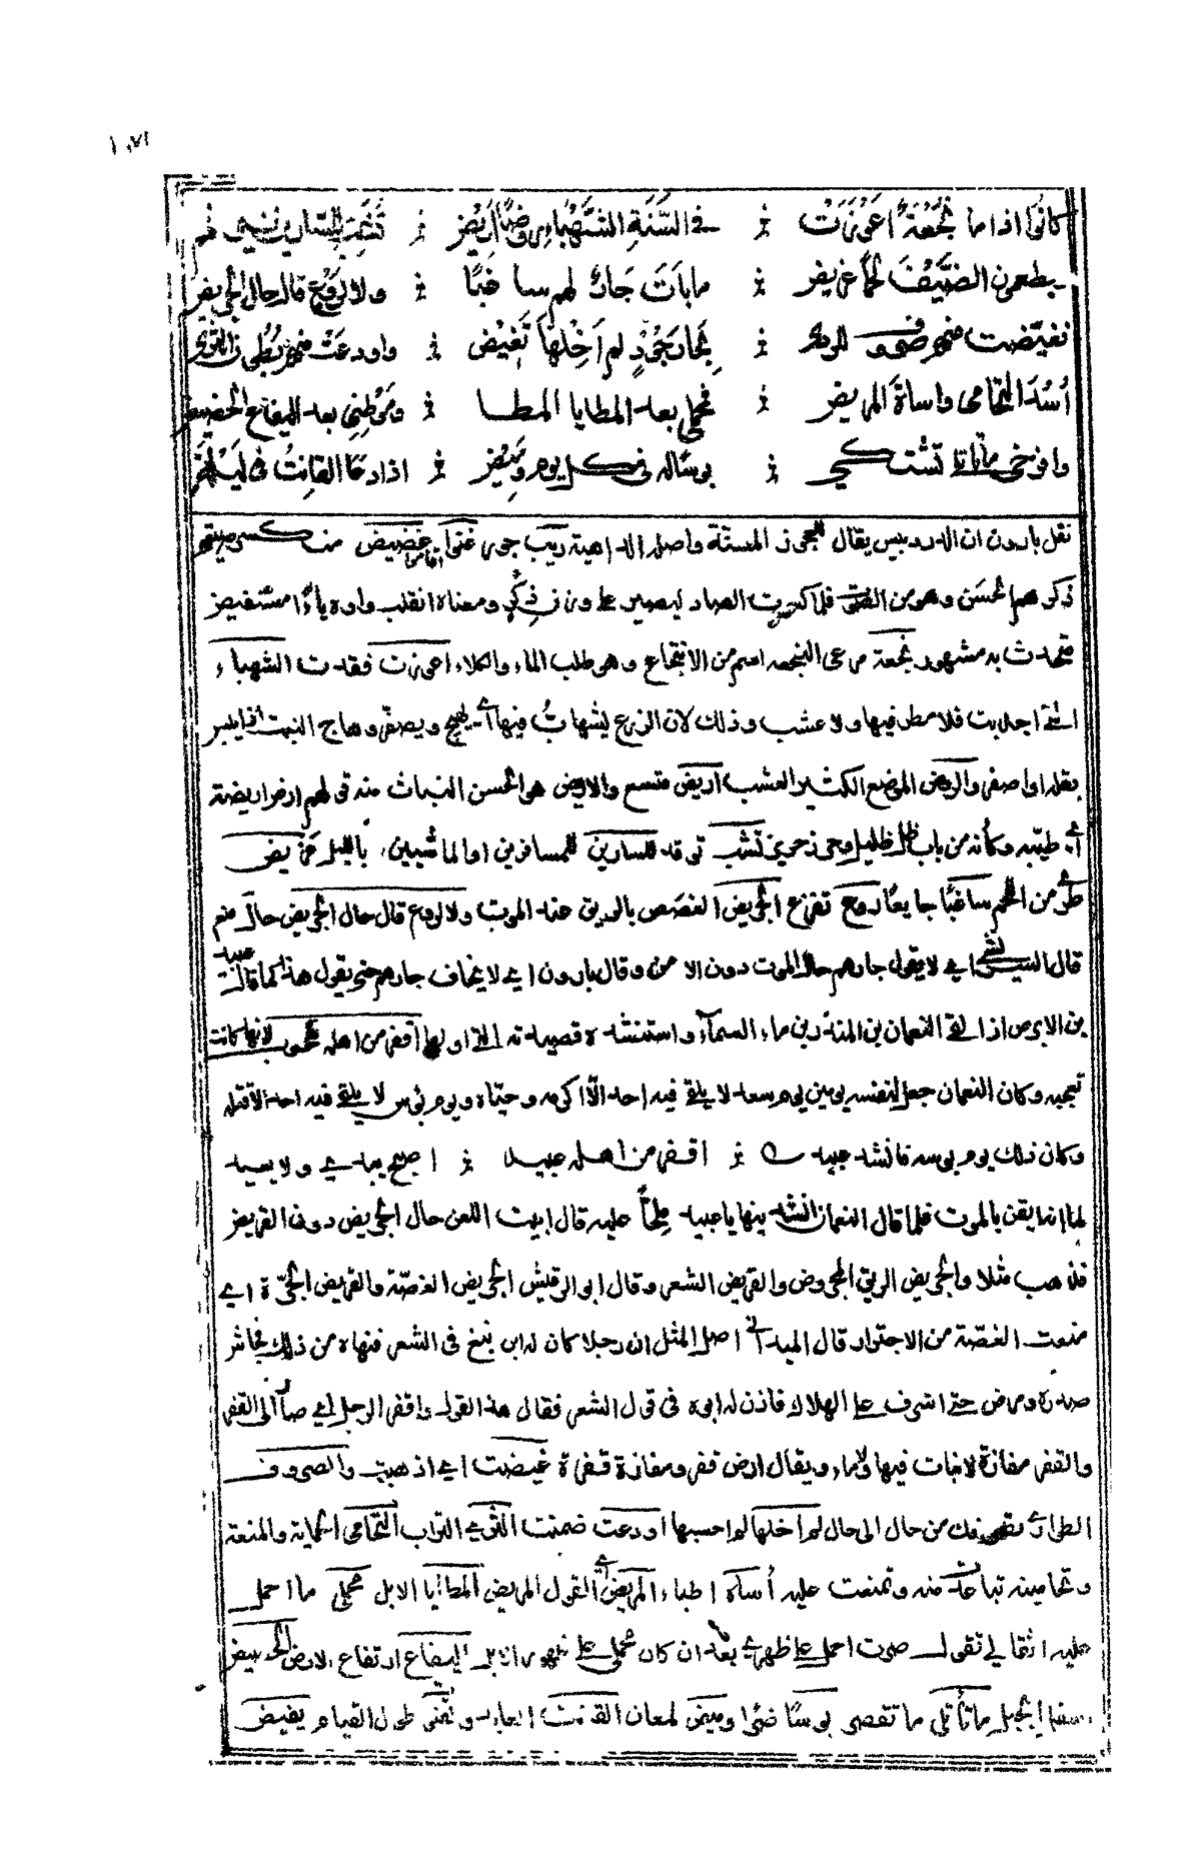 ١٠٧١
كانوا اذا ما نُجْعَةٌ اَعْوَزَتْ ؞ في السَّنَةِ الشَّهْباءِ روضًا اَرِيْض ؞ تُشَبُّ للسارين نيرانهم
يطعمون الضَّيْفَ لحماً غريض ؞ ما بَاتَ جَارٌ لهم ساغبًا ؞ ولا لِرَوْعٍ قال حال الجريض
فغيّضت منهم صروف الردى ؞ بحارَ جُوْدٍ لم اَخِلْهَا تَغِيْض ؞ واودعت منهم بطون الثرى
اُسْدَ التحامي واساةَ المريض ؞ فمحملي بعد المطايا المطا ؞ ومَوْطِنِي بعد اليفاع الحضيض
وافرخي ما تأتلي تشتكي ؞ بوسًا له في كل يوم ومِيْض ؞ اذا دعا القانتُ في لَيْلِهِ
نقل بارون ان الدردبيس يقال للعجوز المسنّة واصله الداهية ريب جور غنوا اقاموا غضيض منكسر صيتهم
ذكرهم الحسَن وهو من الصوت فلما كسرت الصاد ليصير على وزن فِكْر ومعناه انقلب واوه ياءً مستفيض
متحدث به مشهور نجعة مرعى النجعه اسم من الانتجاع وهو طلب الماء والكلاء اعوزت فقدت الشهباء
التي اجدبت فلا مطر فيها ولا عشب وذلك لان الزرع يشهابُّ فيها اي يهيج ويصفر وهاج النبت اذا يبس
بقله او اصفر والروض الموضع الكثير العشب اريض متسع والاريض هو الحسن النبات منه قولهم ارض اريضة
اي طيبه وكأنه من باب ظل ظليل وحرز حريز تشب توقد للسارين للمسافرين او الماشيين بالليل غريض
طريّ من اللحم ساغبًا جايعًا روع تفزع الجريض الغصص بالريق عند الموت ولا لروع قال حال الجريض حال منع
قال الشريشي اي لا يقول جارهم حال الموت دون الامن وقال بارون اي لا يخاف جارهم حتى يقول هذا كما قال عبيد
بن الابرص اذا لقي النعمان بن المنذر بن ماء السمآء واستنشده قصيدته التي اولها اقفر من اهله ملحوب لانها كانت
تعجبه وكان النعمان جعل لنفسه يومين يوم سعد لا يلقى فيه احد الّا اكرمه وحيّاه ويوم بؤس لا يلقى فيه احد الا قتله
وكان ذلك يوم بوسه فانشد عبيد ؞ اقفر من اهله عبيد ؞ اصبح يبدي ولا يعيد
لما انه ايقن بالموت فلما قال النعمان انشدنيها يا عبيد ملحّاً عليه قال ابيت اللعن حال الجريض دون القريض
فذهب مثلا والجريض الريق المجروض والقريض الشعر وقال ابو الرقيش الجريض الغصّة والقريض الجرّة اي
منعت الغصّة من الاجترار قال الميداني اصل المثل ان رجلا كان له ابن نبغ في الشعر فنهاه من ذلك فجاش
صدره ومرض حتى اشرف على الهلاك فاذن له ابوه في قول الشعر فقال هذا القول واقفر الرجل اي صار الى القفر
والقفر مفازة لا نبات فيها ولا ماء ويقال ارض قفر ومفازة قفرة غيضت اي اذهبت والصروف
الطوارئ تصرفك من حال الى حال لم اخلها لم احسبها اودعت ضمنت الثرى التراب التحامي الحماية والمنعة
وتحاميته تباعدت منه وتمنعت عليه أساة اطباء المريض اي القول المريض المطايا الابل محملي ما احمل
عليه اثقالي تقول صرت احمل على ظهري بعد ان كان محملي على ظهور الابل اليفاع ارتفاع الارض الحضيض
سفل الجبل ما تأتلي ما تقصر بوسًا ضرًا وميض لمعان القانت العابد ونحي طول القيام يفيض